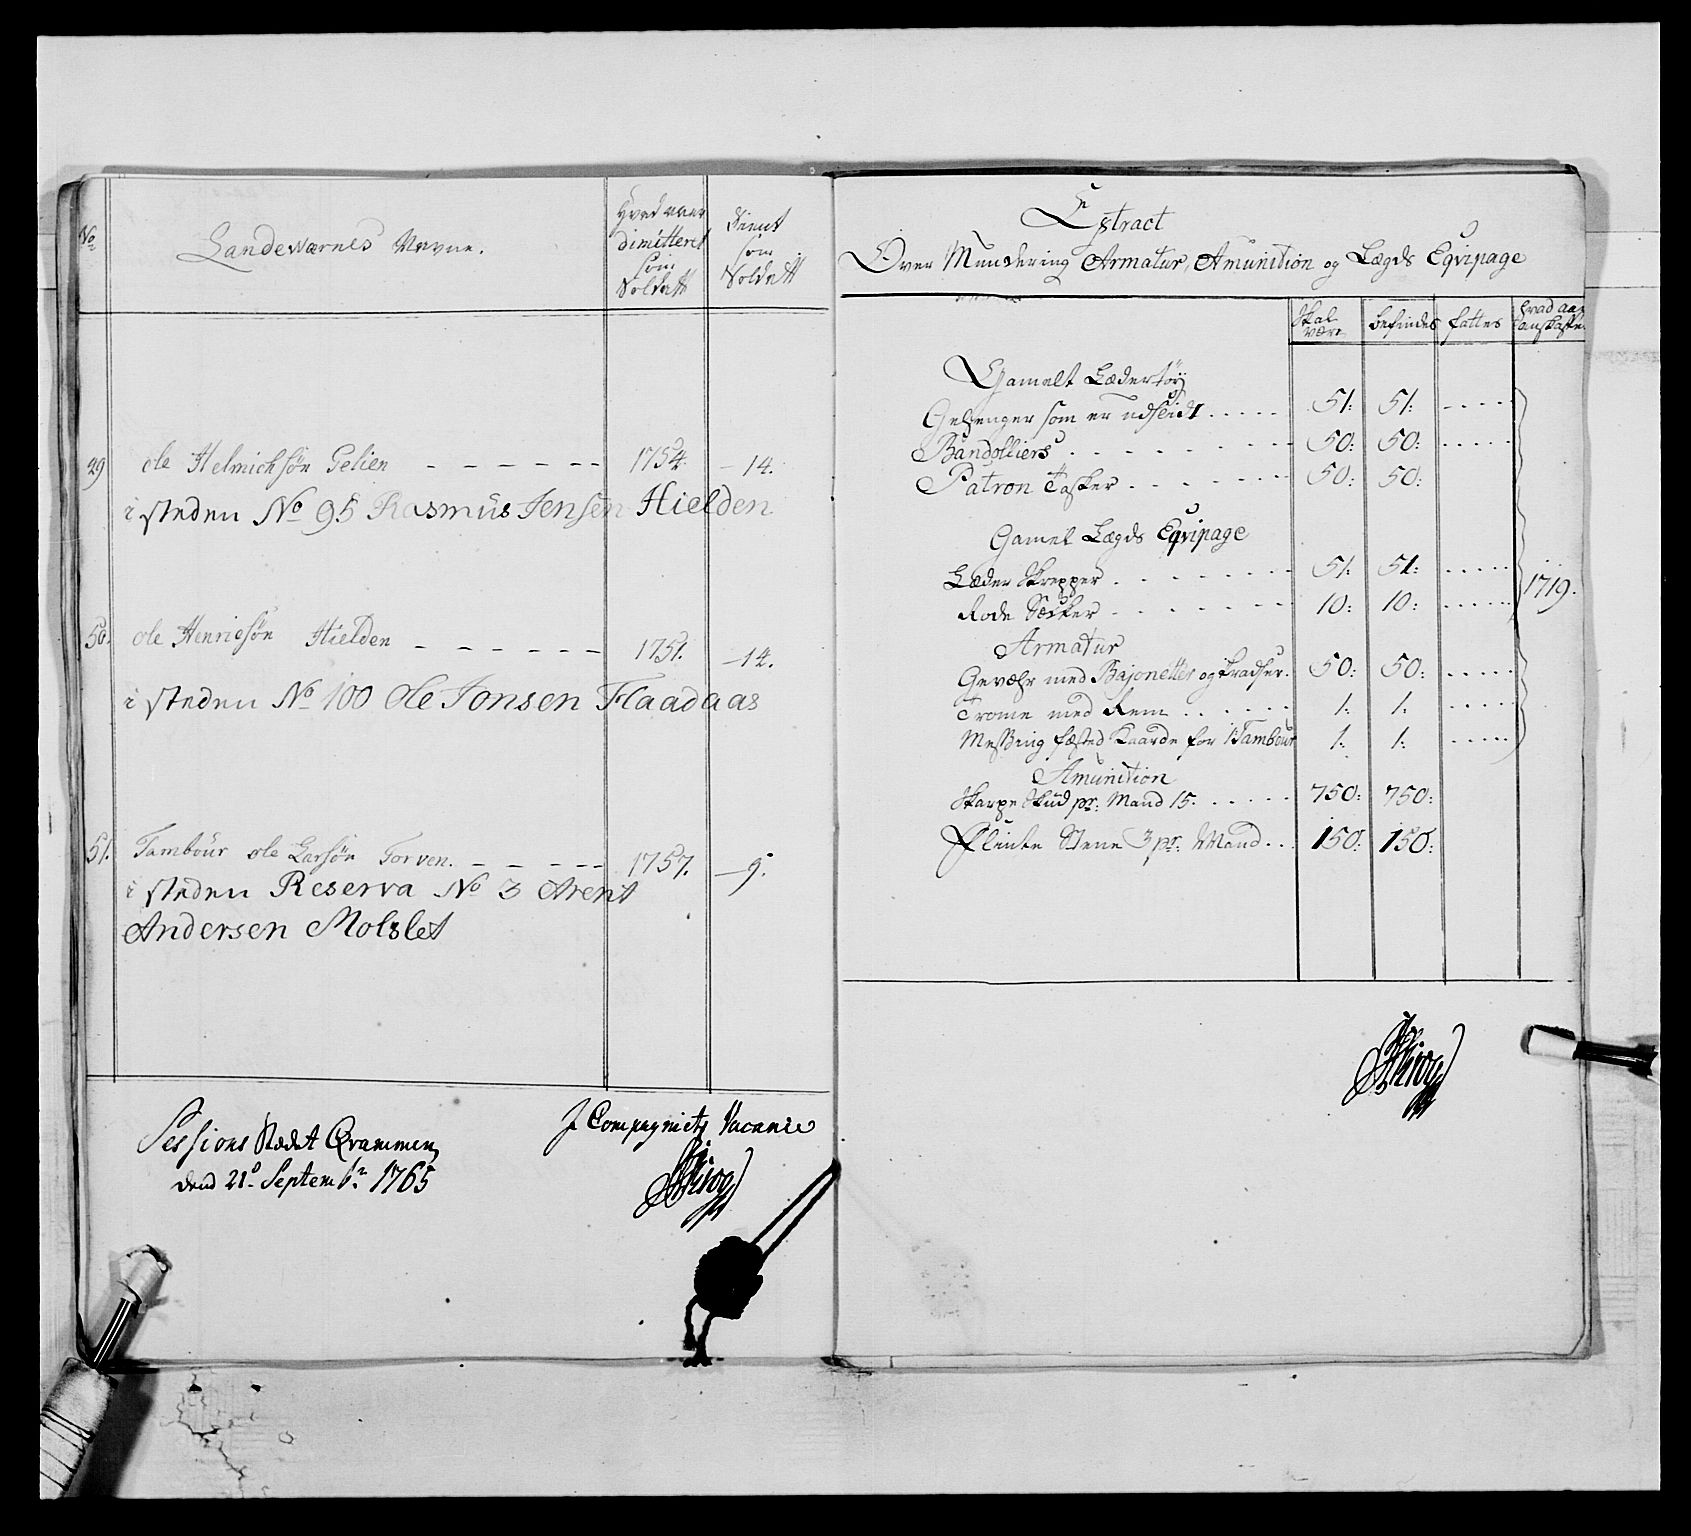 No
Landeværnes Navne.
Hvad aar
dimitteret
som
Soldatt
Dient
som
Soldatt
49 ole Helmichsøn Gelien 1754. 14.
i steden No 95 Rasmus Jensen Hielden
50. ole Henricsøn Hielden 1751. 14.
i steden No 100 Ole Jonsen Flaadaas
51. Tambour ole Larsøn Torven. 1757. 9.
i steden Reserva No 3 Arent
Andersen Molslet
Sessions Stædet Qvammen
dend 21de Septembr 1765
I Compagniets Vacance
Extract
Over Mundering Armatur, Amunition og Lægds Eqvipage
Skal være befindes fattes hvad aar anskaffet
Gamelt Lædertøy
Gehenger som er udslidt 51: 51:
Bandolliers 50: 50:
Patron Tasker 50: 50:
Gamel Lægds Eqvipage
Læder Skrepper 51: 51:
Rode Sækker 10: 10: 1719.
Armatur
Gevæhr med Bajonetter og Kradser. 50: 50:
Trome med Rem 1: 1:
Messing fæsted Kaarde for 1 Tambour 1: 1:
Amunition
Skarpe Skud pr: Mand 15. 750: 750:
Flinte Stene 3 pr: Mand 150: 150: